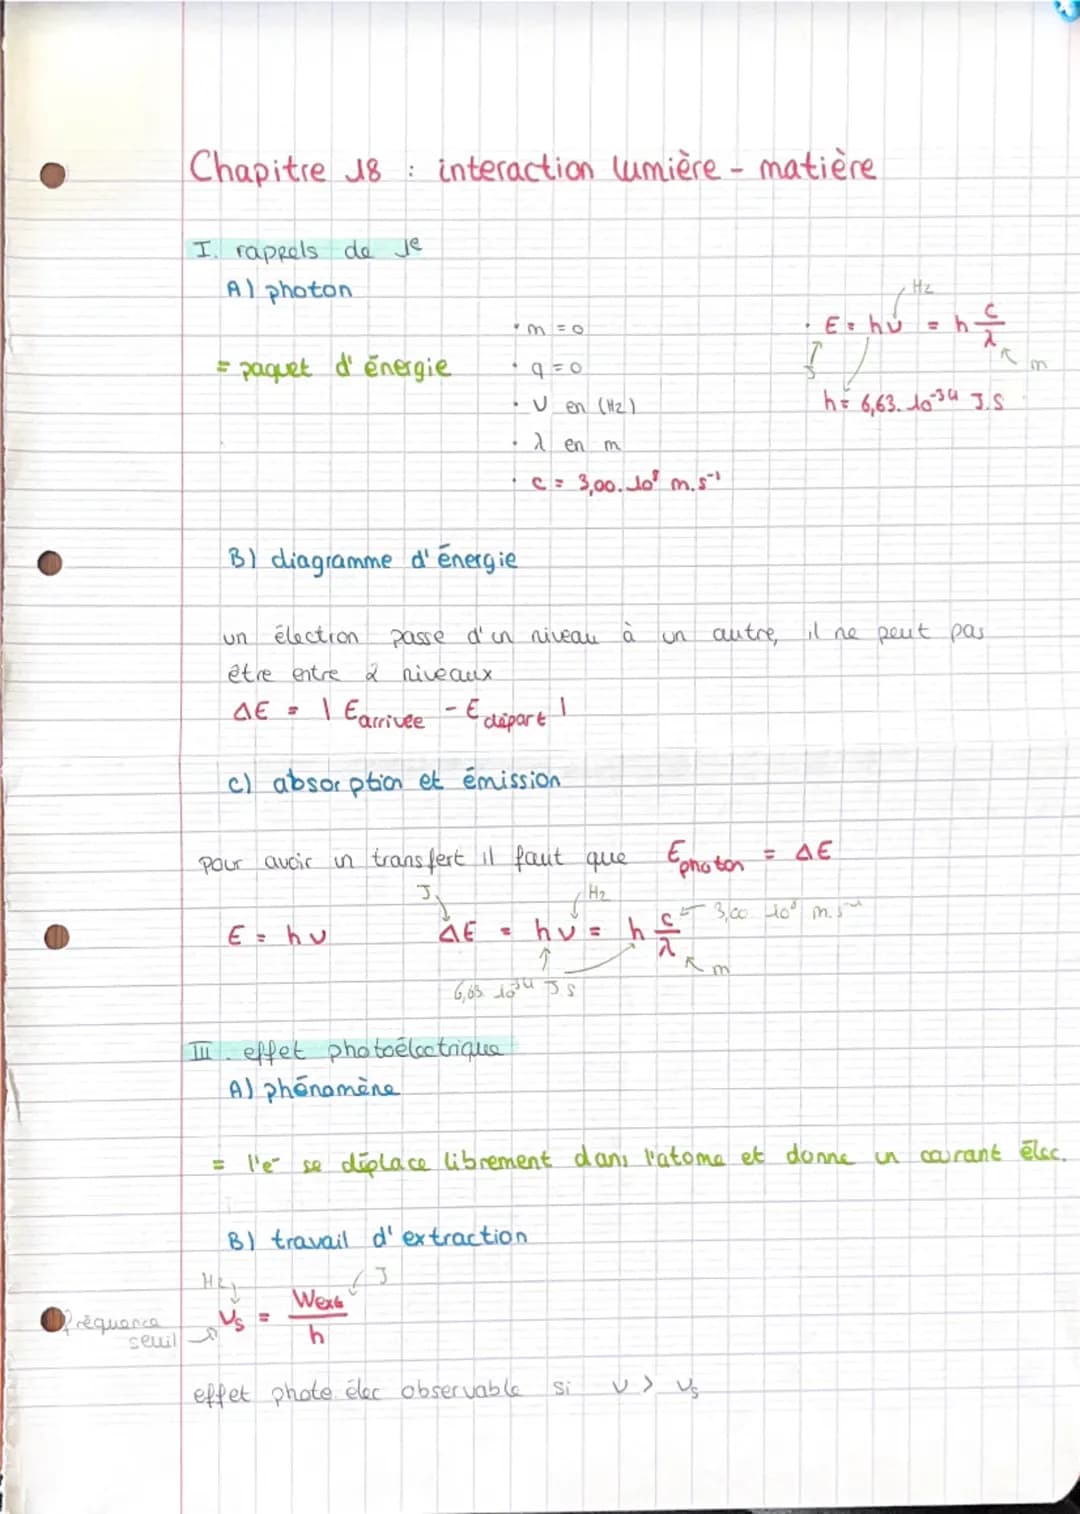 Chapitre 18 : interaction lumière - matière
I. rappels de 1e
A) photon
= paquet d'énergie
• m = 0
• q = 0
• ν en (Hz)
• λ en m
• c = 3,00.10⁸ m.s⁻¹
Hz
• E = hν = h c/λ
J
m
h = 6,63.10⁻³⁴ J.S
B) diagramme d'énergie
un électron passe d'un niveau à un autre, il ne peut pas
être entre 2 niveaux
ΔE = | Earrivée - Edépart |
C) absorption et émission
pour avoir un transfert il faut que Ephoton = ΔE
J Hz
E = hν ΔE = hν = h c/λ 3,00 10⁸ m.s⁻¹
m
6,63 10³⁴ J S
III. effet photoélectrique
A) phénomène
= l'e⁻ se déplace librement dans l'atome et donne un courant élec.
B) travail d'extraction
Hz J
fréquence seuil νs = Wext/h
effet photo élec observable si ν > νs